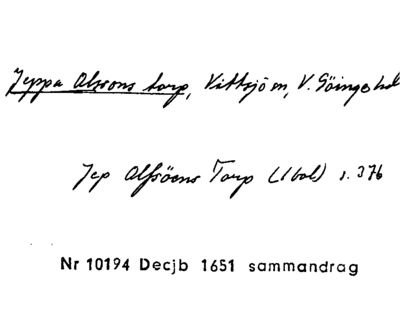 Jeppa Alssons torp, Vittsjö sn, V. Göinge hd
Jep Alfsöens Torp (1 bol) s. 376
Nr 10194 Decjb 1651 sammandrag